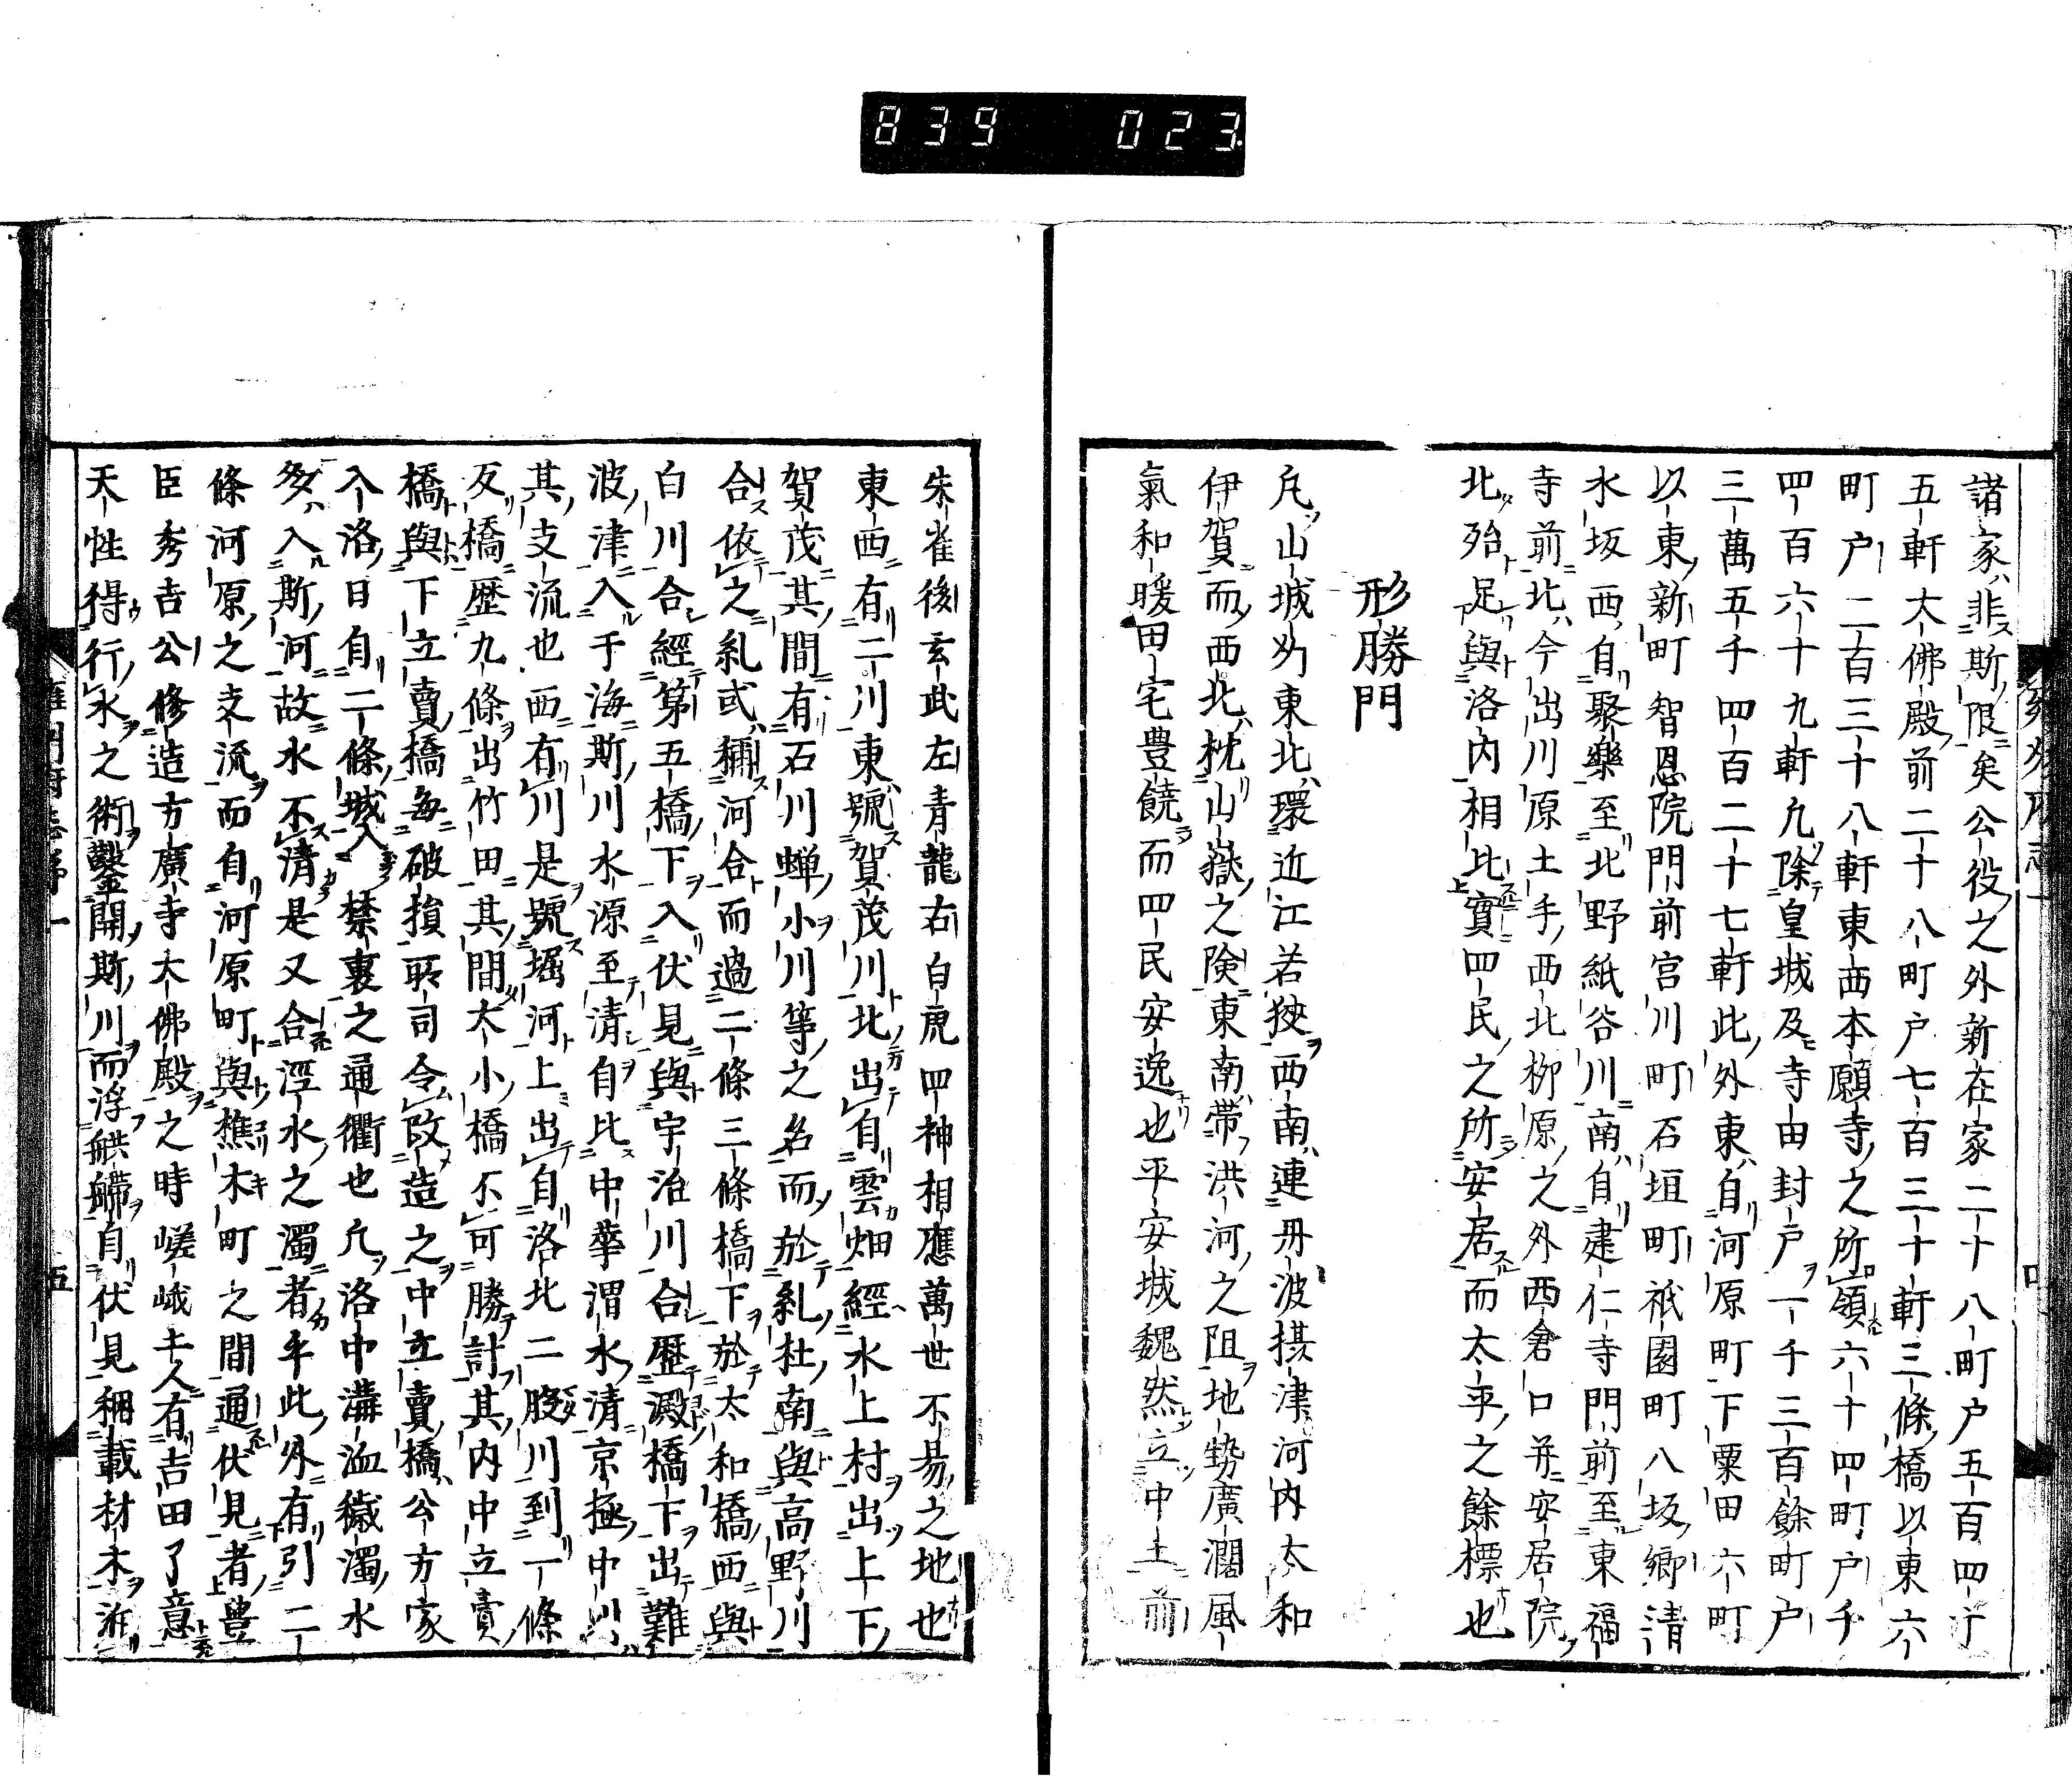 839 023
諸家非斯限矣公役之外新在家二十八町戸五百四十
五軒大佛殿前二十八町戸七百三十軒三條橋以東六
町戸二百三十八軒東西本願寺之所領六十四町戸千
四百六十九軒凢除皇城及寺由封戸一千三百餘町戸
三萬五千四百二十七軒此外東自河原町下粟田六町
以東新町智恩院門前宮川町石垣町祇園町八坂郷清
水坂西自聚樂至北野紙谷川南自建仁寺門前至東福
寺前北今出川原土手西北柳原之外西倉口并安居院
北殆足與洛内相比實四民之所安居而太平之餘標也
形勝門
凢山城州東北環近江若狹西南連丹波摂津河内太和
伊賀而西北枕山嶽之険東南帯洪河之阻地勢廣濶風
氣和暖田宅豊饒而四民安逸也平安城魏然立中土前
朱雀後玄武左青龍右白虎四神相應萬世不易之地也
東西有二川東號賀茂川北出自雲畑經水上村出上下
賀茂其間有石川蝉小川等之名而於糺杜南與高野川
合依之糺或稱河合而過二條三條橋下於太和橋西與
白川合經第五橋下入伏見與宇治川合歴澱橋下出難
波津入于海斯川水源至清自比中華渭水清京極中川
其支流也西有川是號堀河上出自洛北二股川到一條
反橋歴九條出竹田其間大小橋不可勝計其内中立賣
橋與下立賣橋毎破損所司令改造之中立賣橋公方家
入洛日自二條城入禁裏之通衢也凢洛中溝洫穢濁水
多入斯河故水不清是又合涇水之濁者乎此外有引二
條河原之支流而自河原町與樵木町之間通伏見者豊
臣秀吉公修造方廣寺大佛殿之時嵯峨士人有吉田了意
天性得行水之術鑿開斯川而浮舼艜自伏見稛載材木泝
五